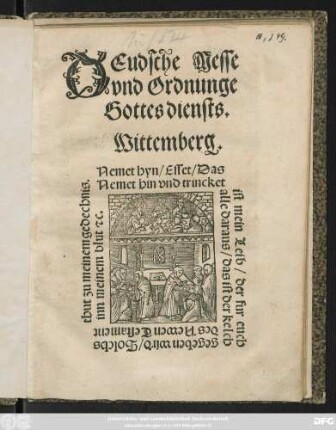 DEudsche Messe
vnd Ordnunge
Gottes diensts.
Wittemberg.
Nemet hyn/Esset/Das
ist mein Leib/der fur euch
gegeben wird/Solchs
thut zu meinem gedechnis.
Nemet hin vnd trincket
alle daraus/das ist der kelch
des Newen Testament
inn meinem blut ꝛc.